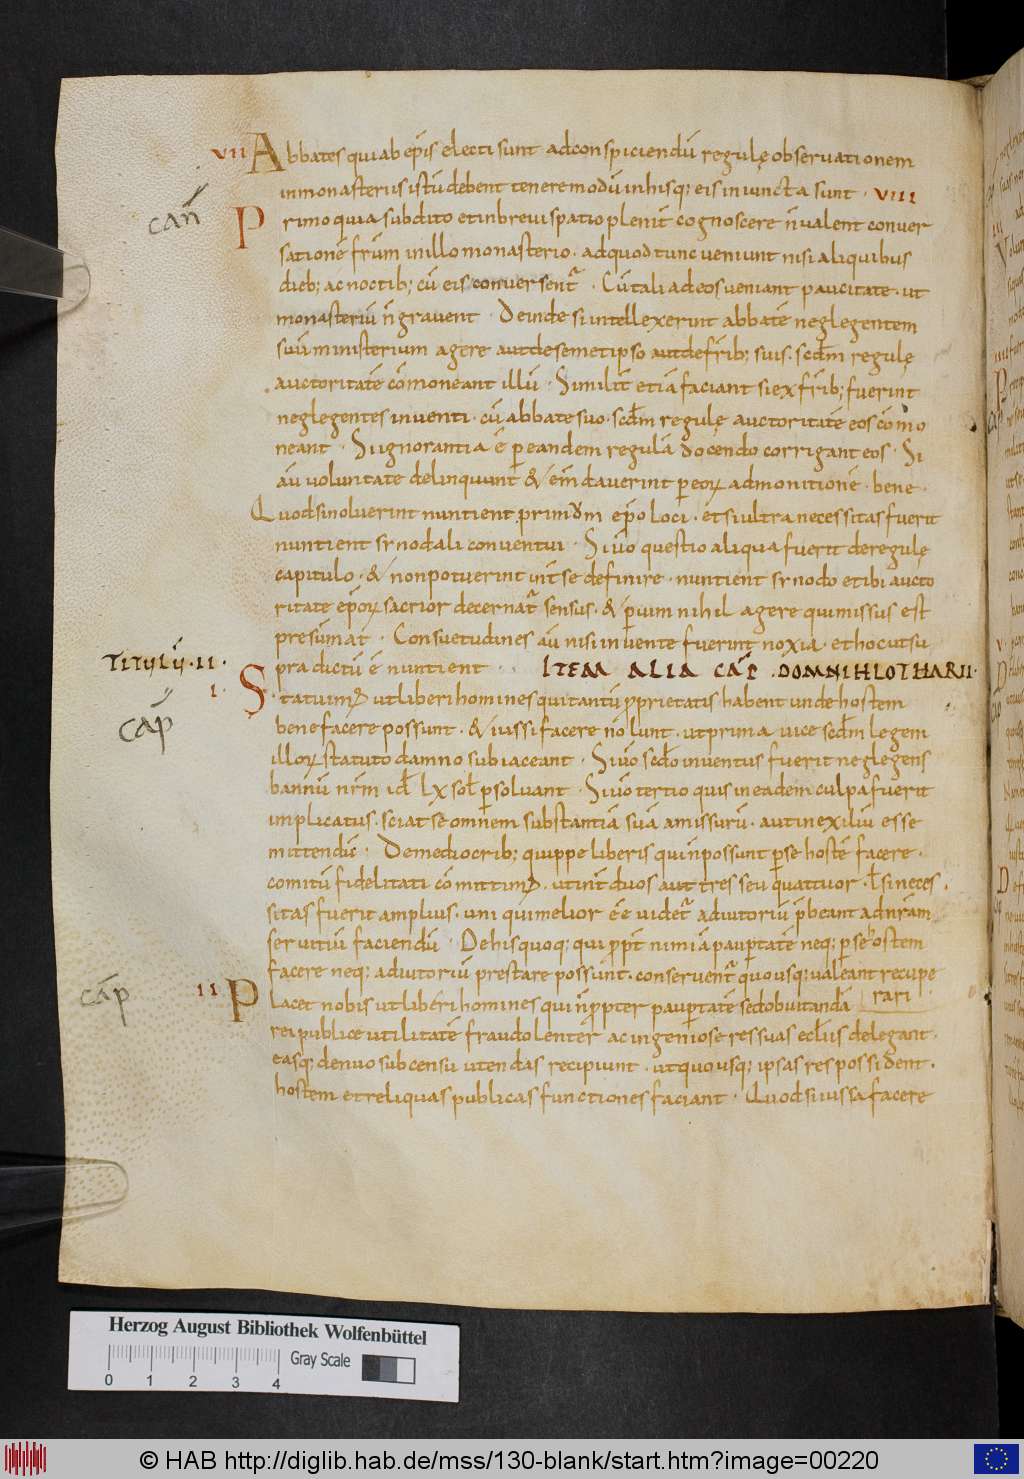 VII Abbates qui ab ep̄is electi sunt ad conspiciendū regulę observationem
in monasteriis istū debent tenere modū in hisq; eis iniuncta sunt · VIII
cap̄ Primo quia subdito et in brevi spatio pleniť cognoscere n̄ valent conver
satione fr̄um in illo monasterio · ad quod tunc veniunt nisi aliquibus
dieb; ac noctib; cū eis conversent · Cū tali ad eos veniant paucitate · ut
monasteriū n̄ gravent · Deinde si intellexerint abbatē neglegentem
suū ministerium agere aut de semetipso aut de fr̄ib; suis · scdm regulę
auctoritatē cōmoneant illū · Similiť etiā faciant si ex fr̄ib; fuerint
neglegentes inventi · cū abbate suo · scdm regulę auctoritatē eos cōmo
neant · Si ignorantia ē p eandem regulā docendo corrigant eos · Si
aū voluntate delinquunt & ēm̄daverint p eoꝝ admonitionē · bene ·
Quod si noluerint nuntient primū ep̄o loci · et si ultra necessitas fuerit
nuntient synodali conventui · Si v̄o questio aliqua fuerit de regulę
capitulo · & non potuerint int̄ se definire · nuntient synodo et ibi aucto
ritate ep̄oꝝ sacrior decernat sensus · & p vim nihil agere qui missus est
presumat · Consuetudines aū nisi invente fuerint noxia · et hoc ut su
TITULU · II · pra dictū ē nuntient · ITEM ALIA CAP̄ · DOMNI HLOTHARII ·
I · Statuim; ut liberi homines qui tantū pprietatis habent unde hostem
cap̄ bene facere possunt · & iussi facere nolunt · ut prima vice scdm legem
illoꝝ statuto damno subiaceant · Si v̄o scdo inventus fuerit neglegens
bannū nr̄m id̄ LX sol p solvant · Si v̄o tertio quis in eadem culpa fuerit
implicatus · sciat se omnem substantiā suā amissurū · aut in exiliū esse
mittendū : De mediocrib; quippe liberis qui n̄ possunt p se hostē facere ·
comitū fidelitati cōmittim; · ut int̄ duos aut tres seu quattuor · ł si neces
sitas fuerit amplius · uni qui melior ēē videt adiutoriū p̄beant ad nr̄am
servitiū faciendū · De his quoq; qui ppt̄ nimiā paup̄tatē neq; p se hostem
facere neq; adiutoriū prestare possunt · conservent quousq; valeant recupe
cap̄ II Placet nobis ut liberi homines qui n̄ ppter paup̄tatē sed ob vitandā rari
rei publice utilitatē fraudolenter ac ingeniose res suas ecl̄iis delegant ·
easq; denuo sub censu utendas recipiunt · ut quousq; ipsas res possident ·
hostem et reliquas publicas functiones faciant · Quod si iussa facere
Herzog August Bibliothek Wolfenbüttel
Gray Scale
0 1 2 3 4
© HAB http://diglib.hab.de/mss/130-blank/start.htm?image=00220